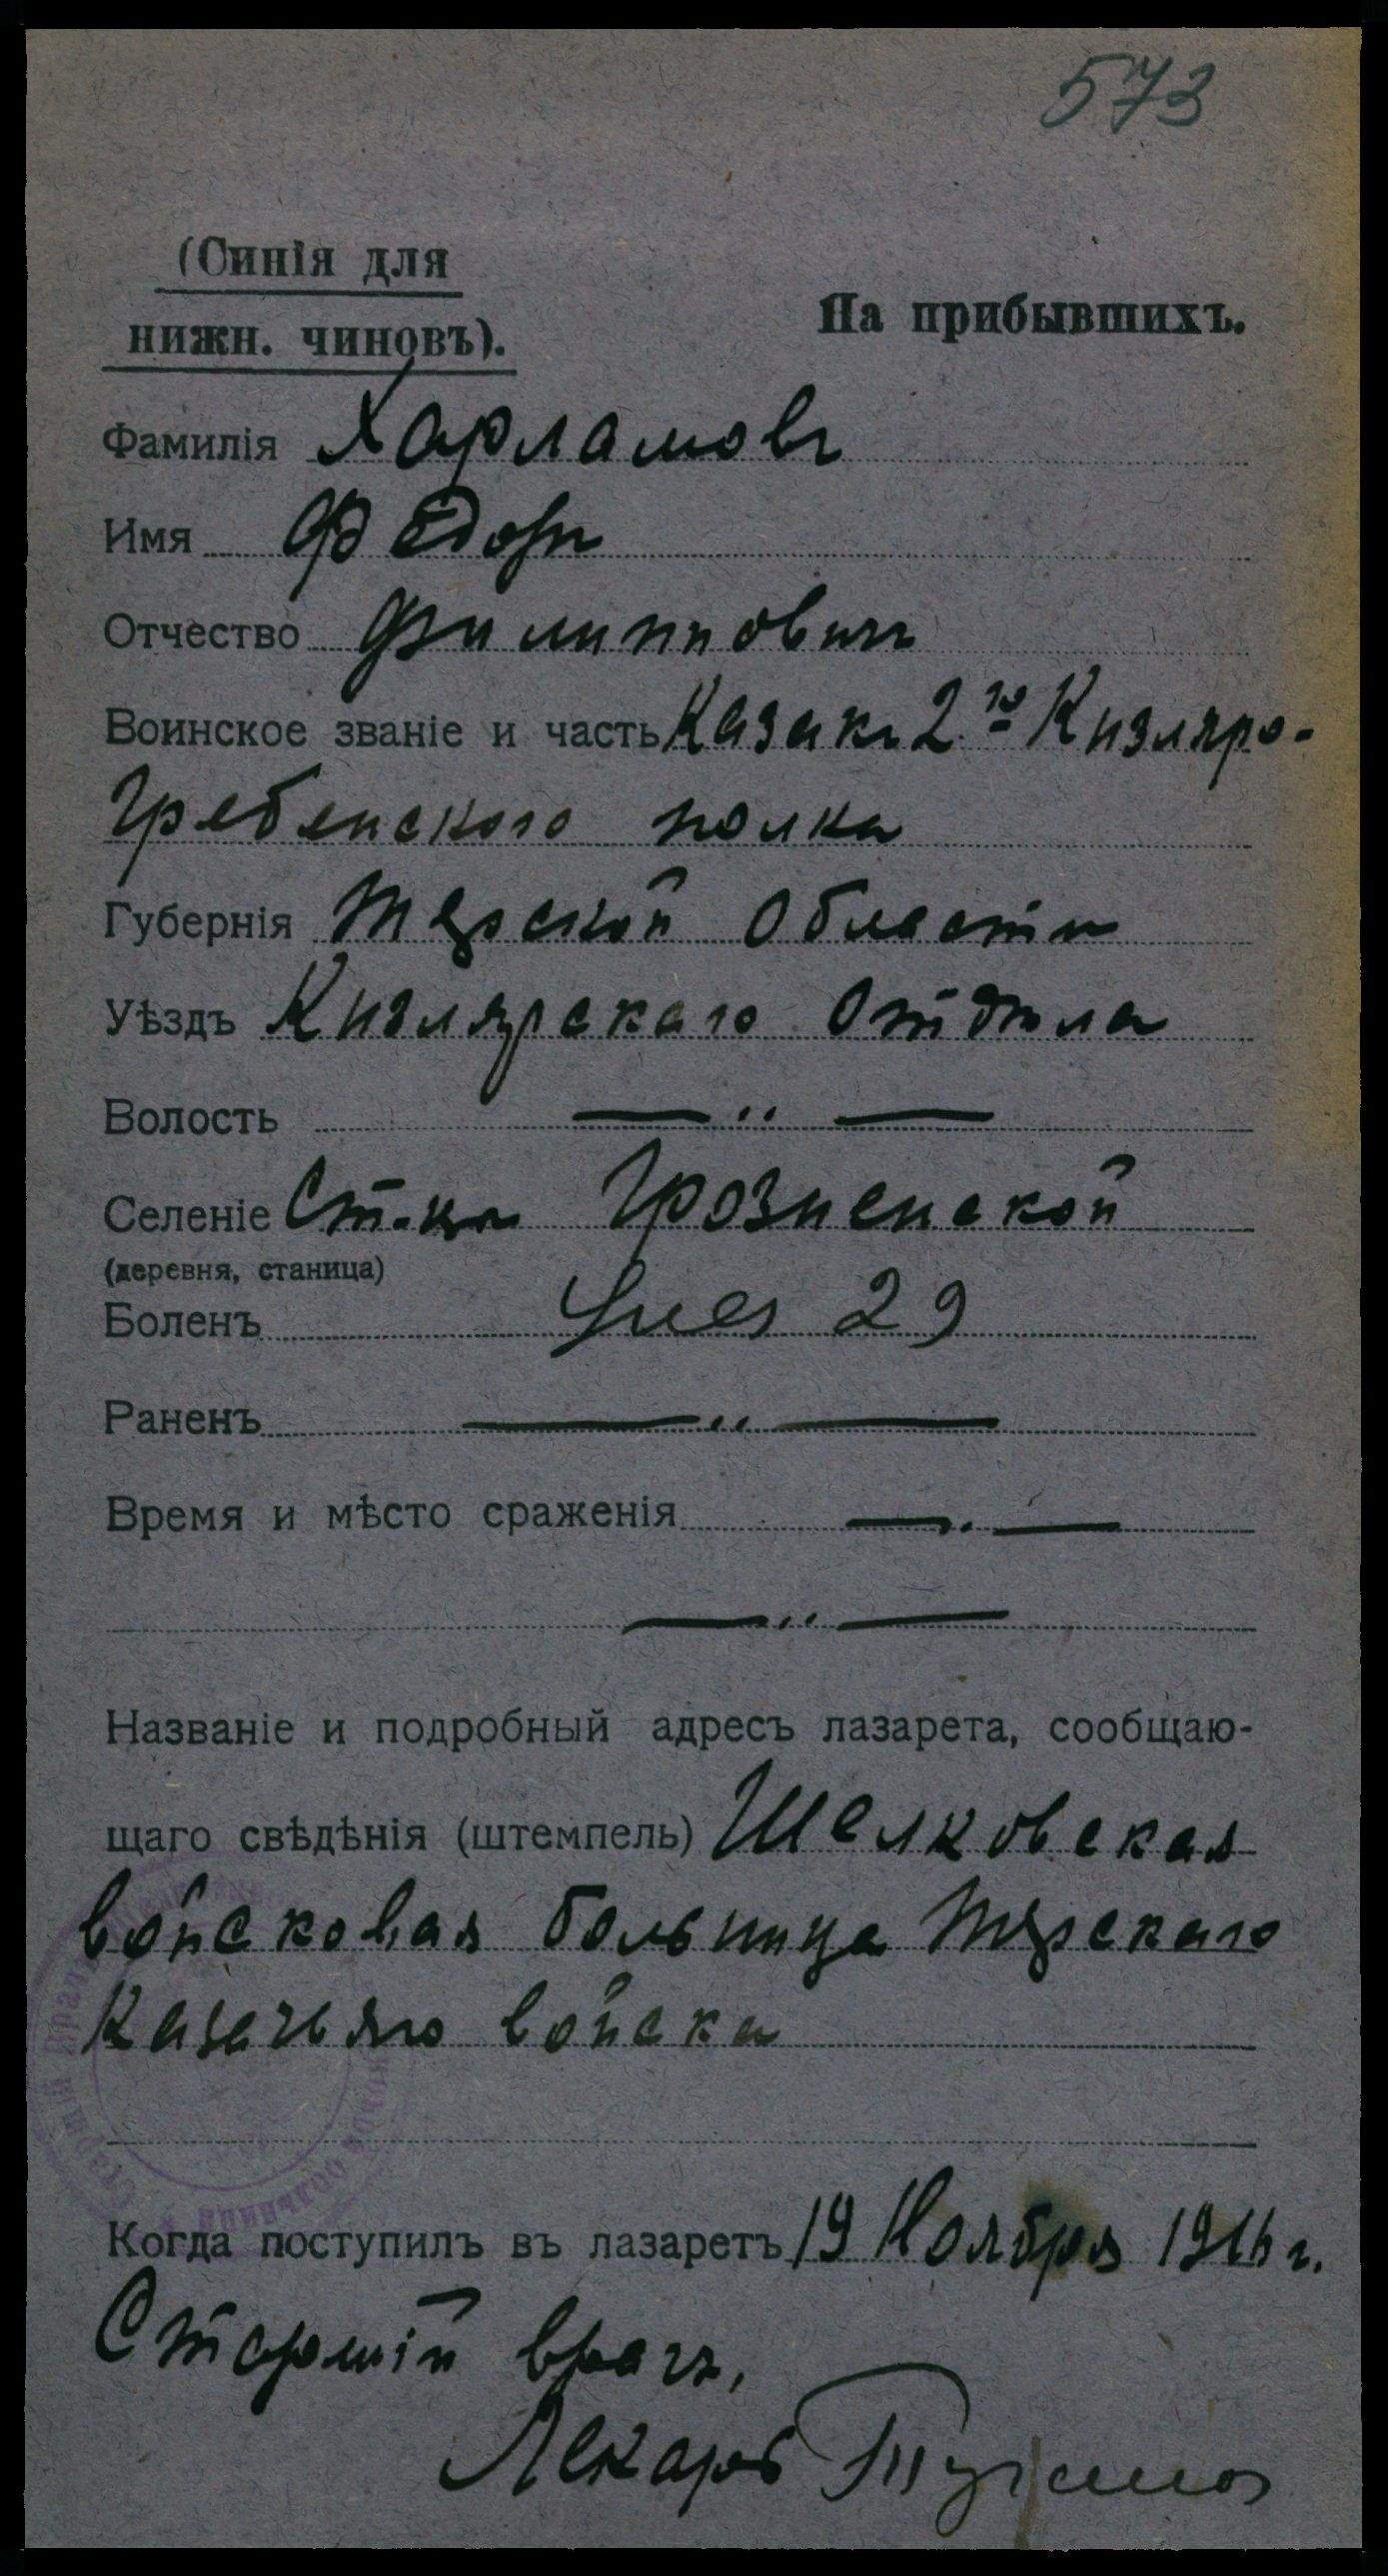 573
(Синія для
нижн. чиновъ).
На прибывшихъ.
Фамилія Харламовъ
Имя Федоръ
Отчество Филипповичъ
Воинское званіе и часть Казакъ 2го Кизляро-
Гребенского полка
Губернія Терской Области
Уѣздъ Кизлярскаго Отдѣла
Волость — „ —
Селеніе Ст-цы Грозненской
(деревня, станица)
Боленъ 29
Раненъ — „ —
Время и мѣсто сраженія — . —
— „ —
Названіе и подробный адресъ лазарета, сообщаю-
щаго свѣдѣнія (штемпель) Шелковская
войсковая больница Терскаго
Казачьяго войска
Когда поступилъ въ лазаретъ 19 Ноября 1916 г.
Старшій врачъ,
Лекарь